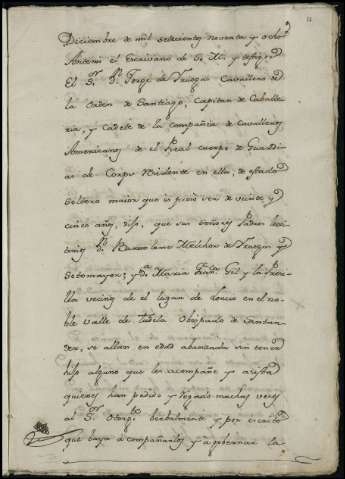 Diciembre de mil setecientos noventa y ocho
Antemi el Escrivano de S. M. y testigos
El Sr. Dn. Jorge de Cavallero de
la Orden de Santiago, Capitan de Caballe
ria, y Cadete de la Compañia de Cavalleros
Americanos de el Real cuerpo de Guardi
as de Corps Residente en ella, de estado
soltero maior que es, dijo ser de veinte y
cinco años, dijo, que sus Señores Padres
Dn. Melchor de y
Sotomayor, y Da. Maria Gil y la
lla vecinos de el lugar de en el no-
ble Valle de Obispado de Santan
der, se allan en edad abanzada sin tener
hijo alguno que les acompañe y asista
quienes han pedido y rogado muchas veces
al Sr. Otorgte. berbalmente y por escrito
que baya a compañarlos y a gobernar la